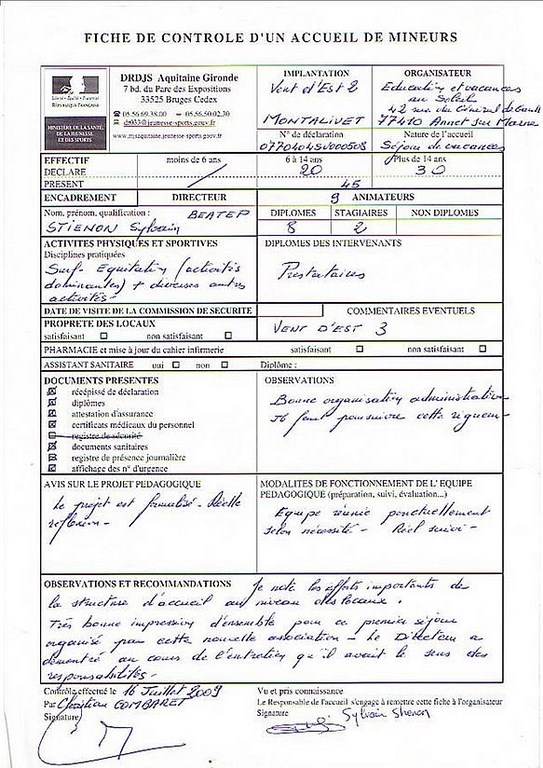 FICHE DE CONTROLE D'UN ACCUEIL DE MINEURS
DRDJS Aquitaine Gironde
7 bd. du Parc des Expositions
33525 Bruges Cedex
05.56.69.38.00 05.56.50.02.30
dr033@jeunesse-sports.gouv.fr
www.mjsaquitaine.jeunesse-sports.gouv.fr
Liberté • Égalité • Fraternité
RÉPUBLIQUE FRANÇAISE
MINISTÈRE DE LA SANTÉ,
DE LA JEUNESSE
ET DES SPORTS
IMPLANTATION
Vent d'Est 2
MONTALIVET
N° de déclaration
0770404SV000508
ORGANISATEUR
Education et vacances
au Soleil
42 rue du Général de Gaulle
77410 Annet sur Marne
Nature de l'accueil
Séjour de vacances
EFFECTIF moins de 6 ans 6 à 14 ans Plus de 14 ans
DECLARE / 20 30
PRESENT 45
ENCADREMENT DIRECTEUR 9 ANIMATEURS
Nom, prénom, qualification : BEATEP
STIENON Sylvain
DIPLOMES STAGIAIRES NON DIPLOMES
8 2
ACTIVITES PHYSIQUES ET SPORTIVES
Disciplines pratiquées
Surf- Equitation (activités
dominantes) + diverses autres
activités-
DIPLOMES DES INTERVENANTS
Prestataires
DATE DE VISITE DE LA COMMISSION DE SECURITE
COMMENTAIRES EVENTUELS
PROPRETE DES LOCAUX
satisfaisant ☐ non satisfaisant ☐
VENT D'EST 3
PHARMACIE et mise à jour du cahier infirmerie satisfaisant ☐ non satisfaisant ☐
ASSISTANT SANITAIRE oui ☐ non ☐ Diplôme :
DOCUMENTS PRESENTES
☒ récépissé de déclaration
☒ diplômes
☒ attestation d'assurance
☒ certificats médicaux du personnel
☐ registre de sécurité
☒ documents sanitaires
☒ registre de présence journalière
☒ affichage des n° d'urgence
OBSERVATIONS
Bonne organisation administrative
Il faut poursuivre cette rigueur-
AVIS SUR LE PROJET PEDAGOGIQUE
Le projet est formalisé- Réelle
reflexion-
MODALITES DE FONCTIONNEMENT DE L'EQUIPE
PEDAGOGIQUE (préparation, suivi, évaluation...)
Equipe réunie ponctuellement
selon nécessité - Réel suivi-
OBSERVATIONS ET RECOMMANDATIONS Je note les efforts importants de
la structure d'accueil au niveau des locaux.
Très bonne impression d'ensemble pour ce premier séjour
organisé par cette nouvelle association - Le Directeur a
démontré au cours de l'entretien qu'il avait le sens des
responsabilités-
Contrôle effectué le 16 Juillet 2009
Par Christian COMBARET
Signature
Vu et pris connaissance
Le Responsable de l'accueil s'engage à remettre cette fiche à l'organisateur
Signature Sylvain Stienon